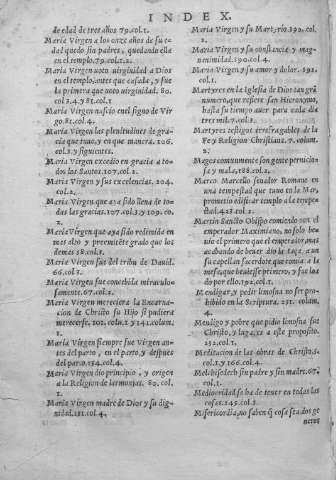 INDEX.
de edad de tres años 79.col.1.
Maria Virgen a los onze años de su e-
dad quedo sin padres, quedando ella
en el templo.79.col.2.
Maria Virgen voto virginidad a Dios
en el templo, antes que casasse, y fue
la primera que voto virginidad. 80.
col.2.4 y 81.col.1.
Maria Virgen nascio en el signo de Vir
go.81.col.4.
Maria Virgen las plenitudines de gra-
cia que tuuo, y en que manera. 106.
col.1. y siguientes.
Maria Virgen excedio en gracia a to-
dos los Santos.107.col.1.
Maria Virgen y sus excelencias. 204.
col.1.
Maria Virgen que aya sido llena de to-
das las gracias.107.col.3.y 109. co.
2.
Maria Virgen que aya sido redimida en
mas alto y preeminẽte grado que los
demas 58.col.1.
Maria Virgen fue del tribu de Dauid.
66.col.1.
Maria Virgen fue concebida miraculo-
samente.67.col.2.
Maria Virgen mereciera la Encarna-
cion de Christo su Hijo si pudiera
merecerse. 101. col.1. y 141.colum.
1.
Maria Virgen siempre fue Virgen an-
tes del parto, en el parto y despues
del parto.154.col.4.
Maria Virgen dio principio, y origen
a la Religion de las monjas. 80. col.
1.
Maria Virgen madre de Dios y su dig-
nidad.151.col.4.
Maria Virgen y su Martyrio.190.col.
2.
Maria Virgen y su constancia y mag-
nanimidad.190.col.4.
Maria Virgen y su amor y dolor. 191.
col.1.
Martyres en la Iglesia de Dios tan grã
numero, que refiere san Hieronymo,
hasta su tiempo auer para cada dia
tres mil.7.col.3.
Martyres testigos irrefragables de la
Fey Religion Christiana. 7. colum.
2.
Magos comunmente son gente pernicio-
sa y mala,188.col.2.
Marco Marcello senador Romano en
una tempestad que tuuo en la Mar,
prometio edificar templo a la tempe-
stad.428.col.1.
Martin Sancto Obispo comiendo con el
emperador Maximiano, no solo be-
uio el primero que el emperador, mas
acabando de beuer dio la taça, a un
su capellan sacerdote que comia a la
mesa, que beuiesse primero, y fue loa
do por ello.192.col.1.
Mendigar, y pedir limosna no ser pro-
hibido en la Scriptura. 251. colum.
4.
Mendigo y pobre que pidio limosna fue
Christo, y haze a este proposito.
252.col.1.
Meditacion de las obras de Christo.5.
col.1 y 166.col.4.
Melchisedech sin padre y sin madre.67.
col.1.
Mediocridad se ha de tener en todas las
cosas.145.col.1.
Misericordia, no saben q̃ cosa sea dos ge
neros